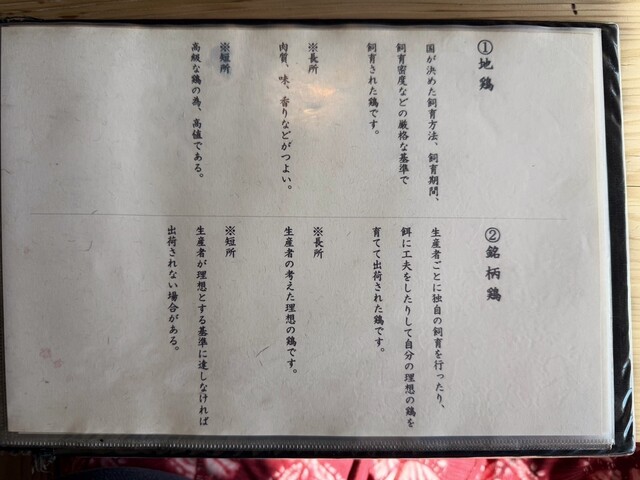 ①地鶏
国が決めた飼育方法、飼育期間、
飼育密度などの厳格な基準で
飼育された鶏です。
※長所
肉質、味、香りなどがつよい。
※短所
高級な鶏の為、高値である。
②銘柄鶏
生産者ごとに独自の飼育を行ったり、
餌に工夫をしたりして自分の理想の鶏を
育てて出荷された鶏です。
※長所
生産者の考えた理想の鶏です。
※短所
生産者が理想とする基準に達しなければ
出荷されない場合がある。